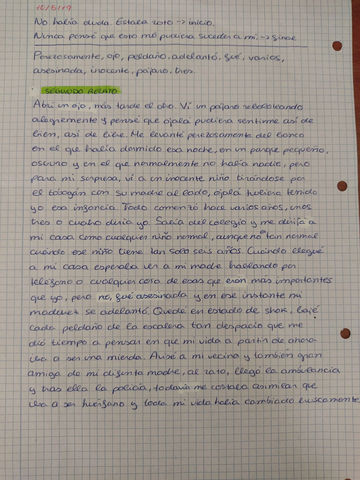 16/5/19
No había duda. Estaba roto → inicio.
Nunca pensé que esto me pudiera suceder a mi. → final
Perezosamente, ojo, peldaño, adelantó, fué, varios,
asesinada, inocente, pájaro, tres.
SEGUNDO RELATO
Abrí un ojo, más tarde el otro. Ví un pájaro revoloteando
alegremente y pensé que ojalá pudiera sentirme así de
bien, así de libre. Me levanté perezosamente del banco
en el que había dormido esa noche, en un parque pequeño,
oscuro y en el que normalmente no había nadie, pero
para mi sorpresa, ví a un inocente niño tirándose por
el tobogán con su madre al lado, ojalá hubiera tenido
yo esa infancia. Todo comenzó hace varios años, unos
tres o cuatro diría yo. Salía del colegio y me dirijía a
mi casa como cualquier niño normal, aunque no tan normal
cuando ese niño tiene tan solo seis años. Cuando llegué
a mi casa esperaba ver a mi madre hablando por
teléfono o cualquier cosa de esas que eran mas importantes
que yo, pero no, fué asesinada y en ese instante mi
madurez se adelantó. Quedé en estado de shok, bajé
cada peldaño de la escalera tan despacio que me
dió tiempo a pensar en que mi vida a partir de ahora
iba a ser una mierda. Avisé a mi vecina y también gran
amiga de mi difunta madre, al rato, llegó la ambulancia
y tras ella la policía, todavía me costaba asimilar que
iba a ser huérfano y toda mi vida había cambiado bruscamente